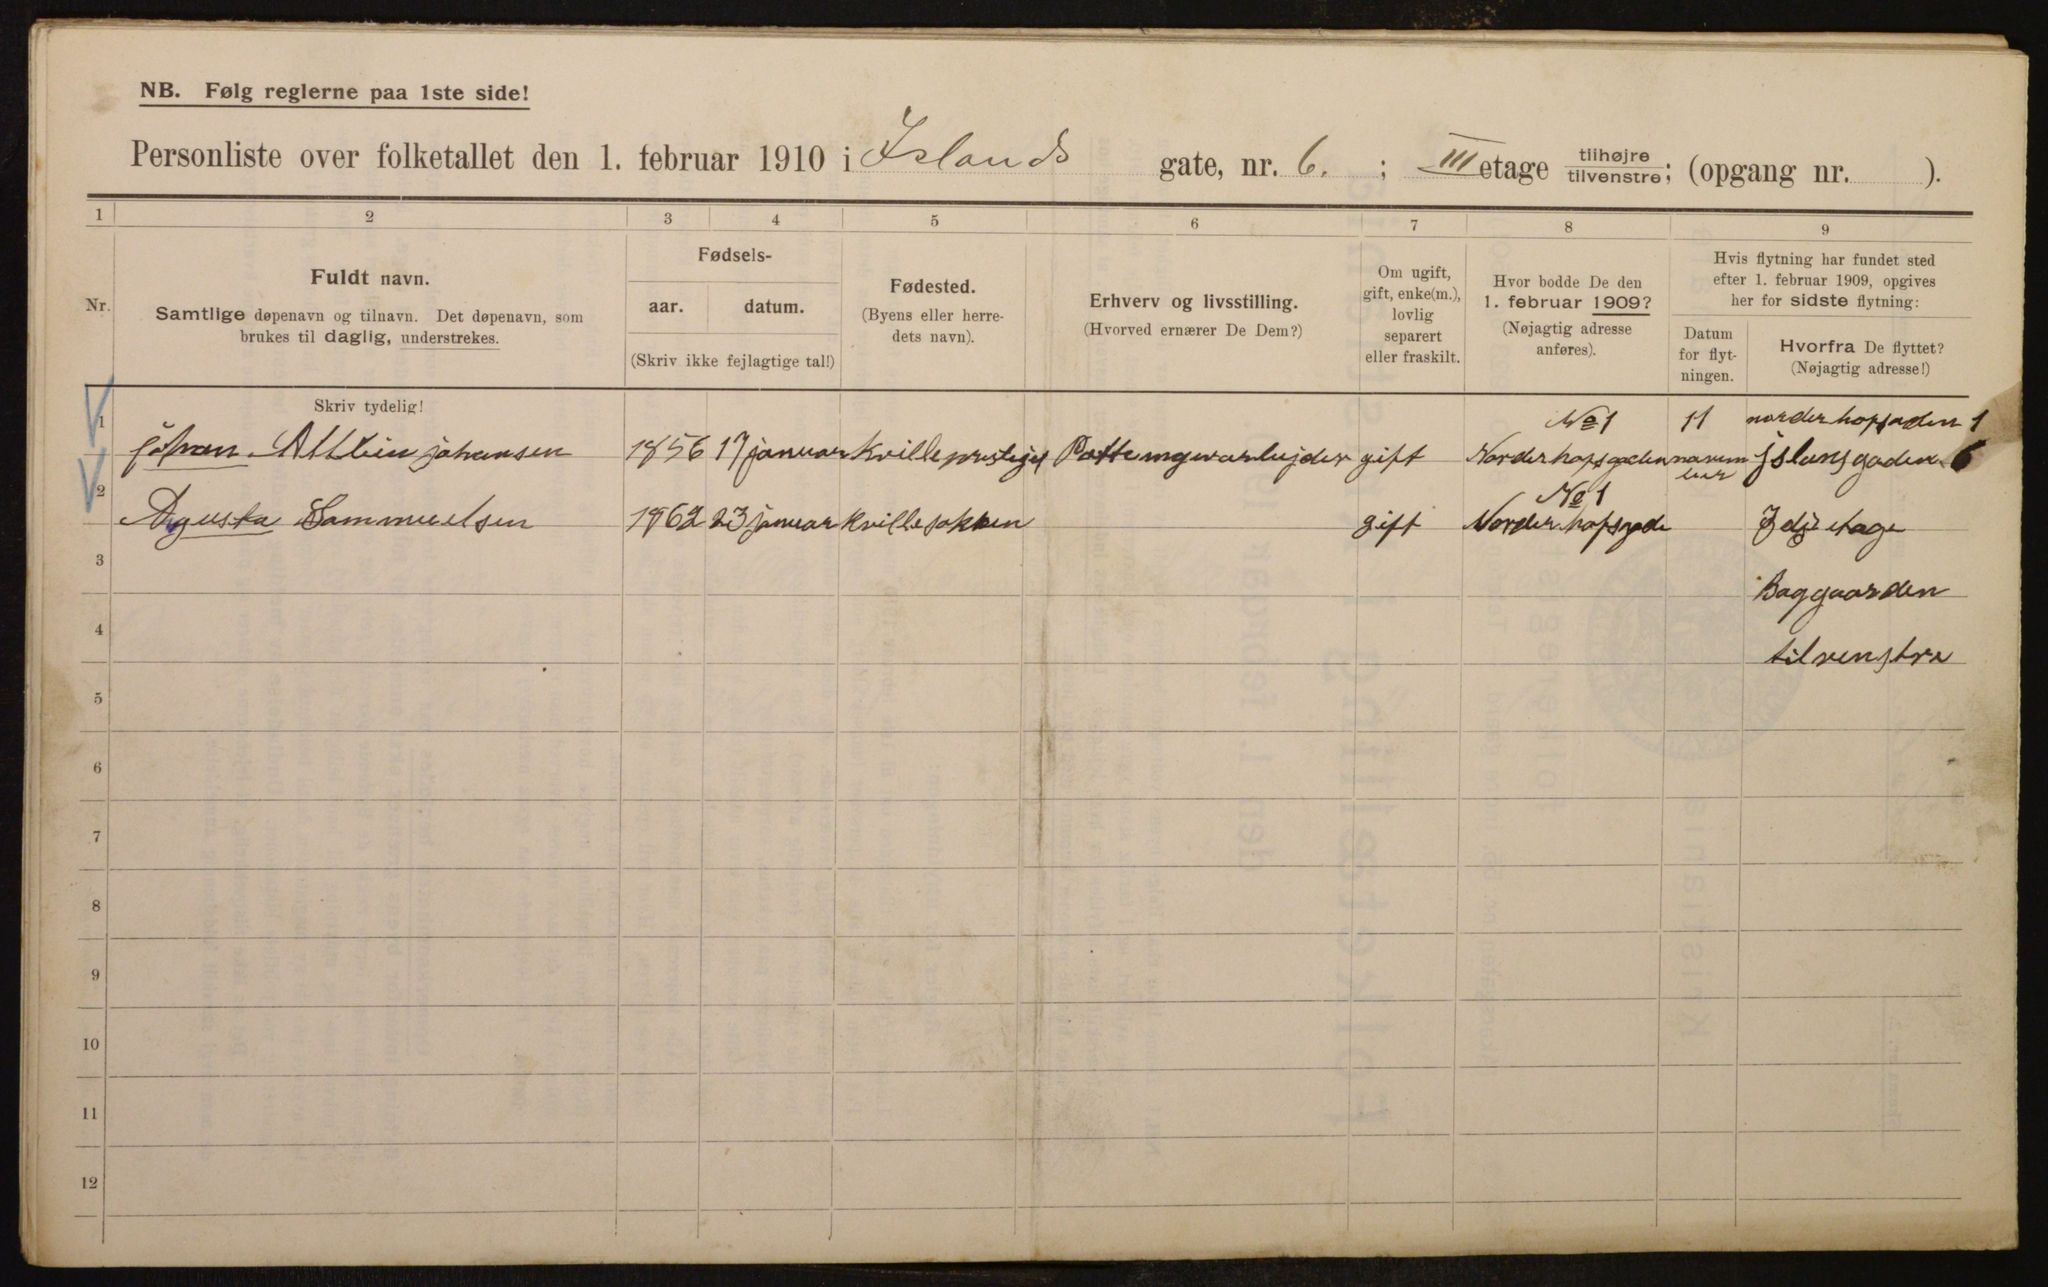 NB. Følg reglerne paa 1ste side!
Personliste over folketallet den 1. februar 1910 i Islands gate, nr. 6. ; III etage tilhøjre tilvenstre; (opgang nr. ).
1 2 3 4 5 6 7 8 9
Nr.
Fuldt navn.
Samtlige døpenavn og tilnavn. Det døpenavn, som
brukes til daglig, understrekes.
Skriv tydelig!
Fødsels-
aar. datum.
(Skriv ikke fejlagtige tal!)
Fødested.
(Byens eller herre-
dets navn).
Erhverv og livsstilling.
(Hvorved ernærer De Dem?)
Om ugift,
gift, enke(m.),
lovlig
separert
eller fraskilt.
Hvor bodde De den
1. februar 1909?
(Nøjagtig adresse
anføres).
Hvis flytning har fundet sted
efter 1. februar 1909, opgives
her for sidste flytning:
Datum
for flyt-
ningen.
Hvorfra De flyttet?
(Nøjagtig adresse!)
No 1 11 norderhofsgaden 1
1 johan johansen 1856 17 januar gift Norderhofsgaden jslansgaden 6
No 1
2 Agusta Sammuelsen 1862 23 januar gift Norderhofsgade 3dje etage
3 Baggaarden
4 tilvenstre
5
6
7
8
9
10
11
12